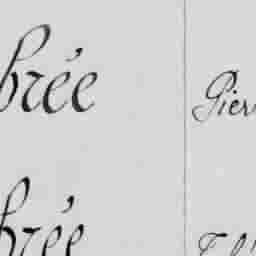 brée
Pier
brée